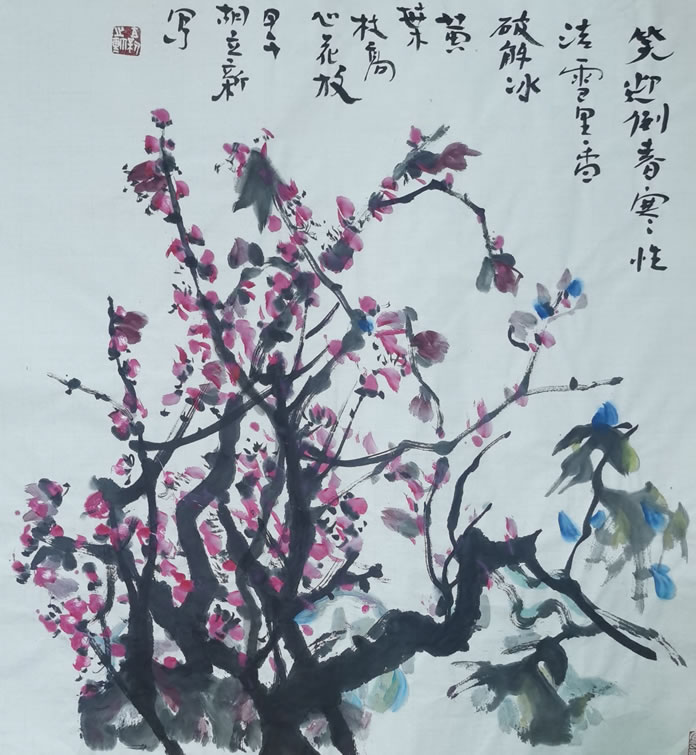 笑迎倒春寒性
洁雪里香
破解冰
黄
葉
枝高
心花放
甲午
胡立新
写